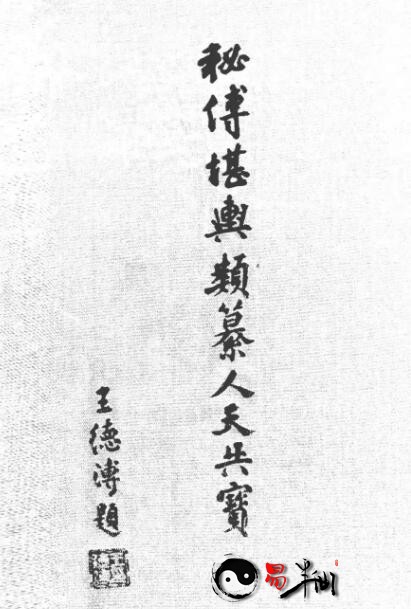 秘傳堪輿類纂人天共寶
王德溥題
易半仙